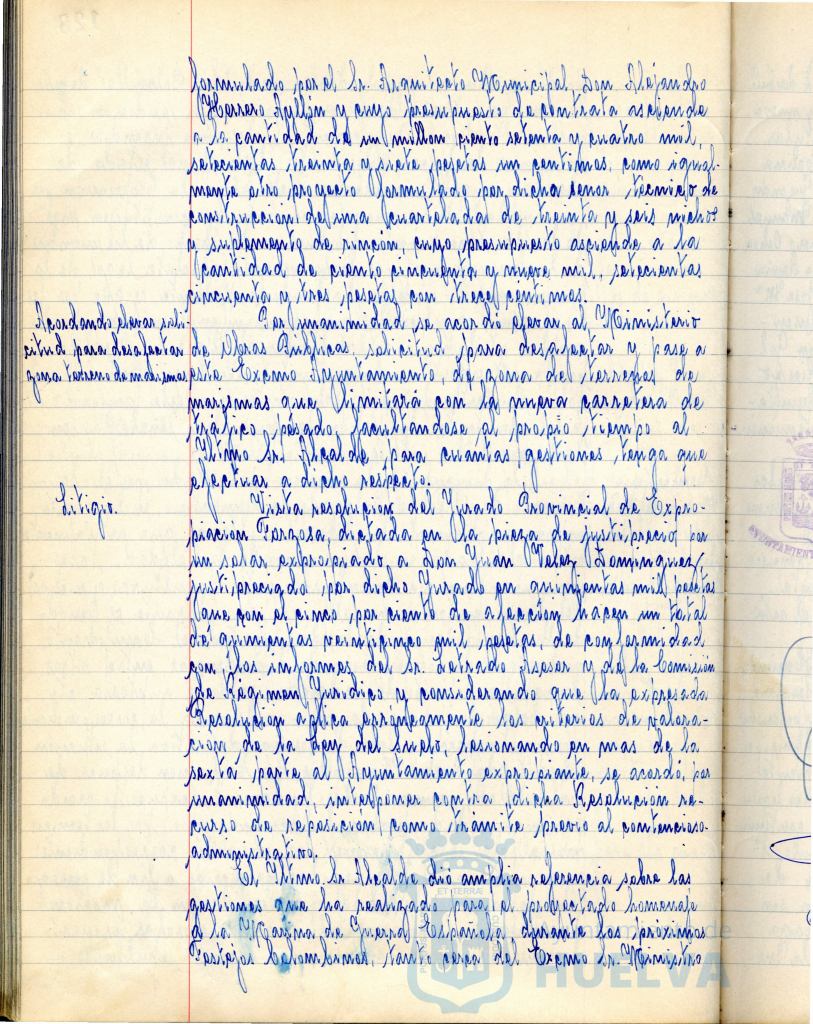 formulado por el Sr. Arquitecto Municipal, Don Alejandro
Herrero Ayllón y cuyo presupuesto de contrata asciende
a la cantidad de un millon ciento setenta y cuatro mil,
setecientas treinta y siete pesetas un centimos, como igual-
mente otro proyecto formulado por dicho señor tecnico de
construccion de una cuartelada de treinta y seis nichos
y suplemento de rincon, cuyo presupuesto asciende a la
cantidad de ciento cincuenta y nueve mil, setecientas
cincuenta y tres pesetas con trece centimos.
Acordando elevar soli-
citud para desafectar
zona terreno de marismas
Por unanimidad se acordó elevar al Ministerio
de Obras Publicas, solicitud para desafectar y pase a
este Excmo Ayuntamiento, de zona de terrenos de
marismas que limitará con la nueva carretera de
tráfico pesado, facultandose al propio tiempo al
Iltmo Sr. Alcalde para cuantas gestiones tenga que
efectuar a dicho respecto.
Litigio.
Vista resolucion del Jurado Provincial de Expro-
piación Forzosa, dictada en la pieza de justiprecio por
un solar expropiado a Don Juan Velez Dominguez,
justipreciado por dicho Jurado en quinientas mil pesetas
que con el cinco por ciento de afección hacen un total
de quinientas veinticinco mil pesetas, de conformidad
con los informes del Sr. Letrado Asesor y de la Comisión
de Régimen Juridico y considerando que la expresada
Resolución aplica erróneamente los criterios de valora-
ción de la Ley del Suelo, lesionando en mas de la
sexta parte al Ayuntamiento expropiante, se acordó, por
unanimidad, interponer contra dicha Resolución re-
curso de reposición como trámite previo al contencioso-
administrativo.
El Iltmo. Sr. Alcalde, dió amplia referencia sobre las
gestiones que ha realizado para el proyectado homenaje
a la Marina de Guerra Española durante los próximos
Festejos Colombinos, tanto cerca del Excmo Sr. Ministro
HUELVA